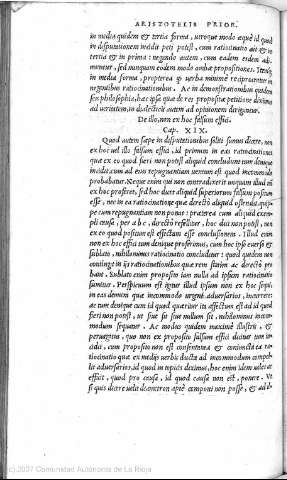 ARISTOTELIS PRIOR.
in media quidem et tertia forma, utroque modo atque id quod
in disputationem medii peti potest, cum ratiocinatio ait et in
tertia et in prima: negando autem, cum eadem eidem adi-
munt, sed nunquam eodem modo ambæ propositiones. Itaque
in media forma, propterea verba minime reciprocantur in
negantibus ratiocinationibus. Ac in demonstrationibus quidem
sen philosophia, hæc ipsa quæ de res propositæ petitione diximus
ad veritatem, in dialecticis autem ad opinionem diriguntur.
De illo, non ex hoc falsum effici.
Cap. XIX.
Quod autem sæpe in disputationibus soliti sumus dicere, non
ex hoc aut illo falsum effici, id primum in eas ratiocinationes
quæ ex eo quod fieri non potest aliquid concludunt tum denique
incidit, cum ad eius repugnantiam uerum est quod incommode
probabatur. Neque enim qui non contradixerit unquam illud
ex hoc proferet, sed hoc duntaxat aliquid superiorum falsum positum
esse, nec in ea ratiocinatione quæ directo aliquid ostendit, quip-
pe cum repugnantiam non ponat: præterea cum aliquid exem-
pli causa, per a b c, directo refellitur, hoc dici non potest, non
ex eo quod positum est effectam esse conclusionem. Illud enim
non ex hoc effici tum denique proferimus, cum hoc ipso everso et
sublato, nihilominus ratiocinatio concluditur: quod quidem non
contingit in ijs ratiocinationibus quæ rem statim ac directo pro
bant. Sublato enim proposito iam nulla ad ipsum ratiocinatio
pertinet. Perspicuum est igitur illud ipsum non ex hoc sequi,
in eas demum quæ incommodo urgent adversarios, incurrere,
ac tum denique cum id quod quæritur ita affectum est ad id quod
fieri non potest, ut siue sit siue nullum sit, nihilominus incom-
modum sequatur. Ac modus quidem maxime illustris, et
pervagatus, quo non ex proposito falsum effici dicitur tum in-
cidit, cum proposito non est consentanea et coniuncta ea ra-
tiocinatio quæ ex medijs verbis ducta ad incommodum compel-
lit adversarios, id quod in topicis diximus, hoc enim idem valet ac
effici, quod pro causa, id quod causa non est, ponere. Ut
si quis docere velit diametron aptè componi non posse, et ad ib
(c) 2007 Comunidad Autónoma de La Rioja